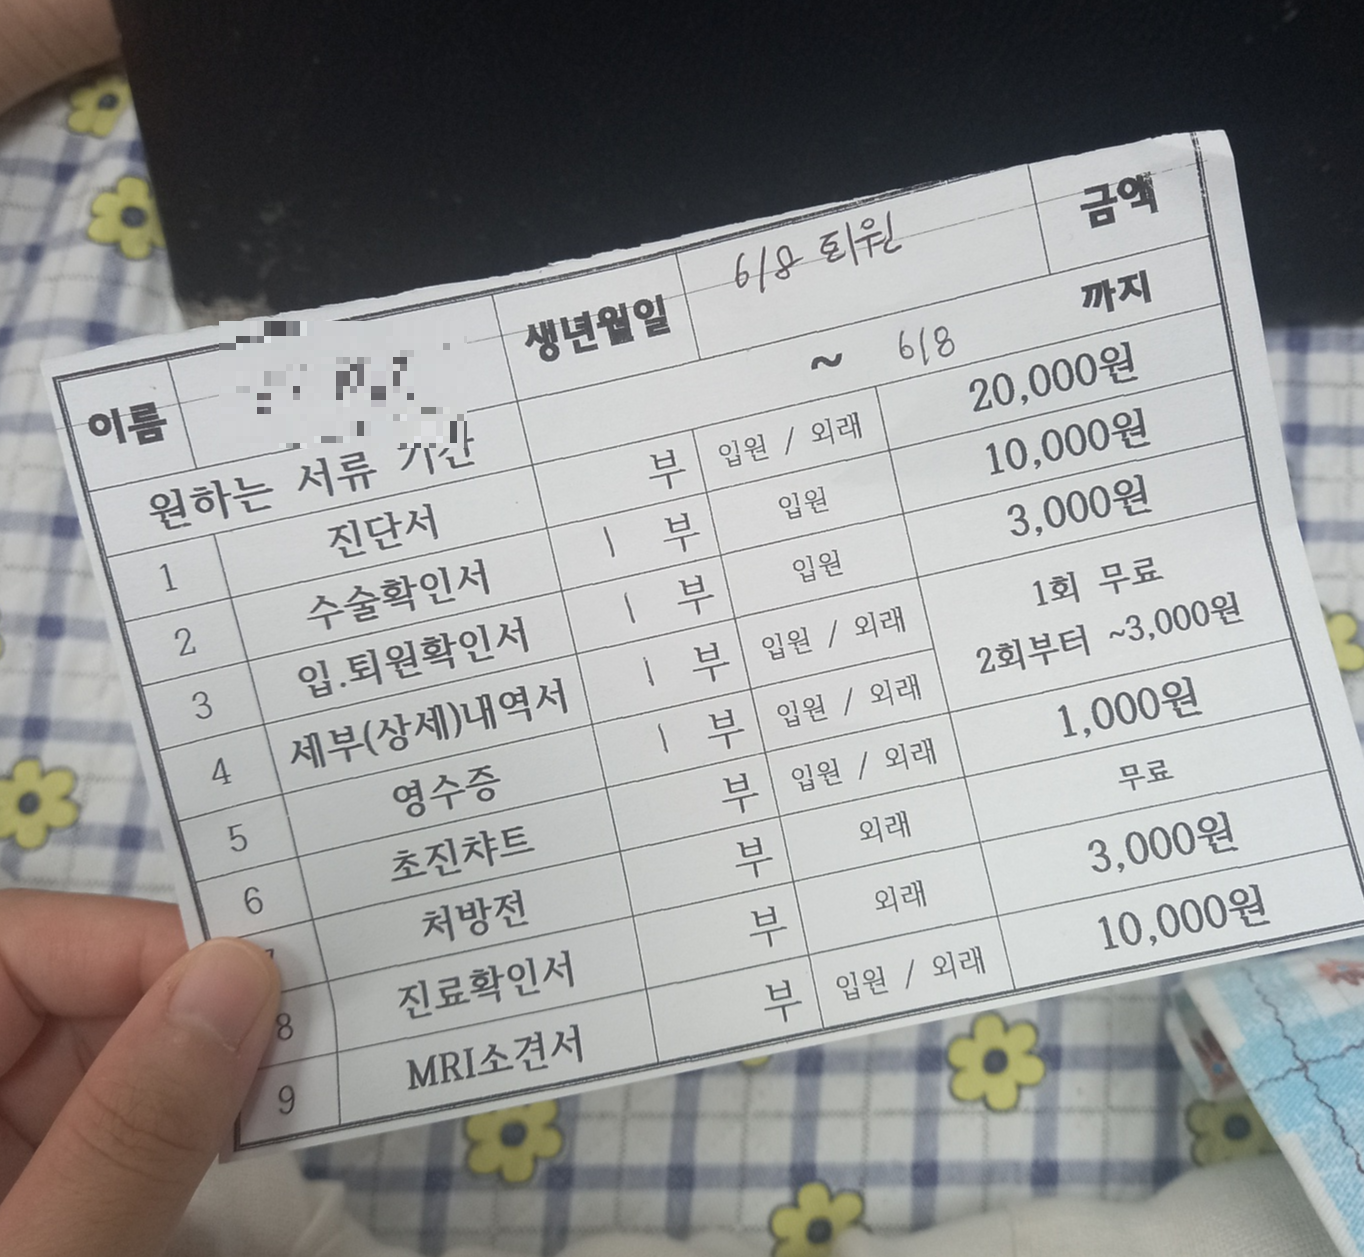 이름 생년월일 금액
원하는 서류 기간 ~ 6/8 까지
1 진단서 부 입원 / 외래 20,000원
2 수술확인서 1 부 입원 10,000원
3 입.퇴원확인서 1 부 입원 3,000원
4 세부(상세)내역서 1 부 입원 / 외래 1회 무료
5 영수증 1 부 입원 / 외래 2회부터 ~3,000원
6 초진챠트 부 입원 / 외래 1,000원
처방전 부 외래 무료
8 진료확인서 부 외래 3,000원
9 MRI소견서 부 입원 / 외래 10,000원